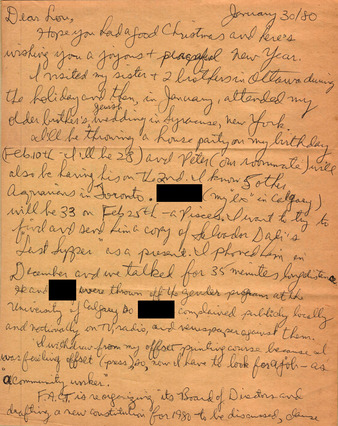 January 30/80
Dear Lou,
Hope you had a good Christmas and here's
wishing you a joyous + peaceful New Year.
I visited my sister + 2 brothers in Ottawa during
the holiday and then, in January, attended my
older brother's Jewish wedding in Syracuse, New York.
I'll be throwing a house party on my birthday
(Feb 10th - I'll be 28) and Peter (our roommate) will
also be having his on the 2nd. I know 5 other
Aquarians in Toronto. (my "ex" in Calgary)
will be 33 on Feb 25th - a Pisces. I want to try to
find and send him a copy of Salvador Dali's
"Last Supper" as a present. I phoned him in
December and we talked for 35 minutes long distance
He and were thrown off U's gender program at the
University of Calgary so complained publicly locally
and nationally on TV, radio, and newspaper against them.
I withdrew from my offset printing course because I
was feeling offset (press) so, now I have to look for a job - as
a "community worker".
F.A.C.T. is reorganizing its Board of Directors and
drafting a new constitution for 1980 to be discussed, clause